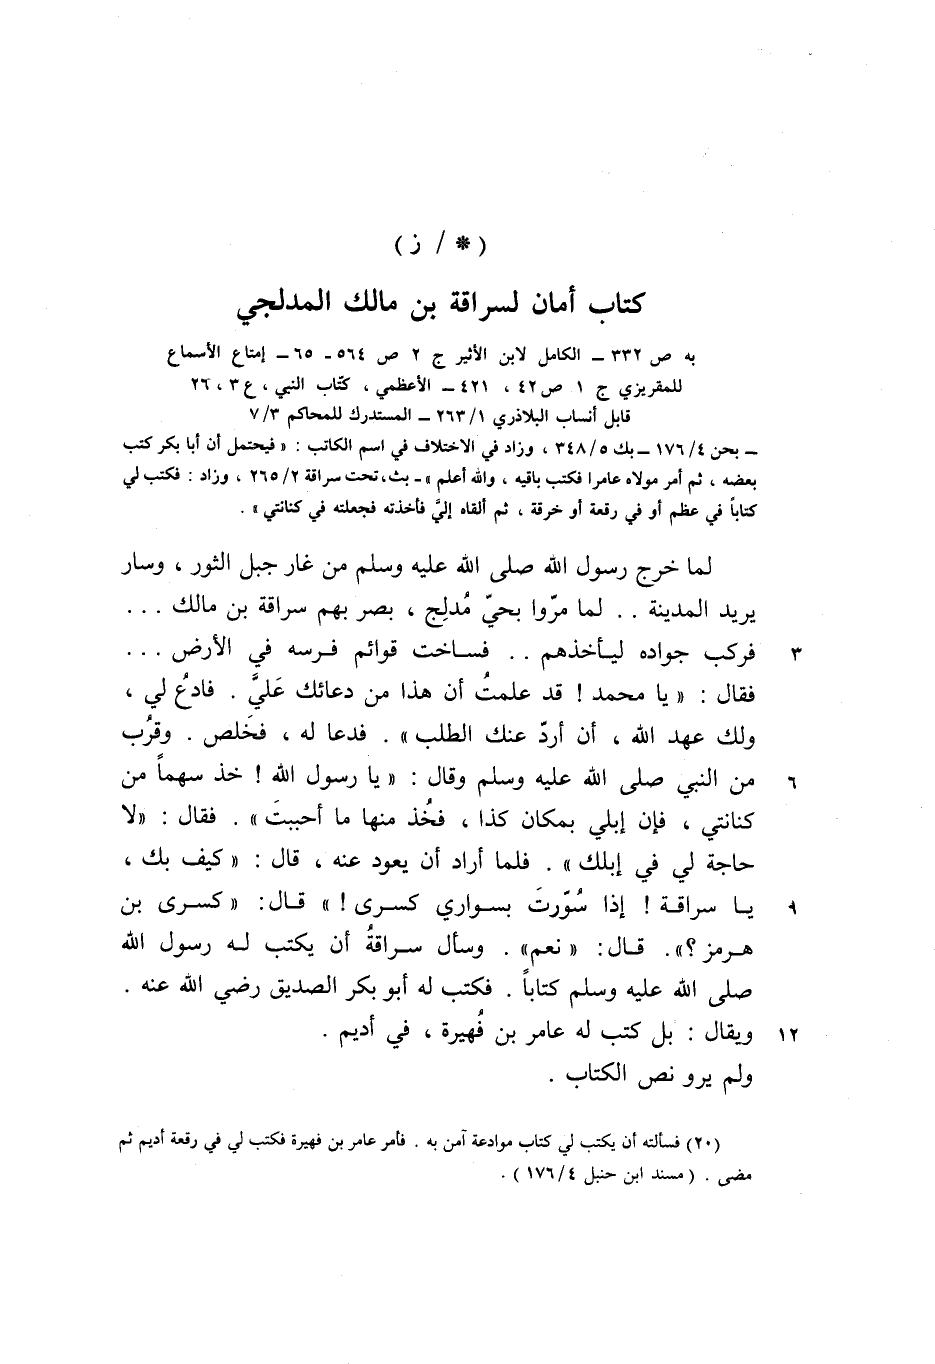 (* / ز)
كتاب أمان لسراقة بن مالك المدلجي
به ص ٣٣٢ ــ الكامل لابن الأثير ج ٢ ص ٥٦٤ـ ٦٥ ــ إمتاع الأسماع
للمقريزي ج ١ ص ٤٢ ، ٤٢١ ــ الأعظمي ، كتّاب النبي ، ع ٣ ، ٢٦
قابل أنساب البلاذري ٢٦٣/١ ــ المستدرك للمحاكم ٧/٣
ــ بحن ١٧٦/٤ ــ بك ٣٤٨/٥ ، وزاد في الاختلاف في اسم الكاتب : « فيحتمل أن أبا بكر كتب
بعضه ، ثم أمر مولاه عامرا فكتب باقيه ، والله أعلم » ـ بث، تحت سراقة ٢٦٥/٢ ، وزاد : فكتب لي
كتاباً في عظم أو في رقعة أو خرقة ، ثم ألقاه إليَّ فأخذته فجعلته في كنانتي » .
لما خرج رسول الله صلى الله عليه وسلم من غار جبل الثور ، وسار
يريد المدينة . . لما مرّوا بحيّ مُدلِج ، بصر بهم سراقة بن مالك . . .
٣ فركب جواده ليأخذهم . . فساخت قوائم فرسه في الأرض . . .
فقال : « يا محمد ! قد علمتُ أن هذا من دعائك عَليَّ . فادعُ لي ،
ولك عهد الله ، أن أردّ عنك الطلب» . فدعا له ، فخَلص . وقرُب
٦ من النبي صلى الله عليه وسلم وقال : « يا رسول الله ! خذ سهماً من
كنانتي ، فإن إبلي بمكان كذا ، فخُذ منها ما أحببتَ» . فقال : «لا
حاجة لي في إبلك» . فلما أراد أن يعود عنه ، قال : « كيف بك ،
٩ يا سراقة ! إذا سُوّرتَ بسواري كسرى !» قال: « كسرى بن
هرمز ؟». قال: « نعم» . وسأل سراقةُ أن يكتب له رسول الله
صلى الله عليه وسلم كتاباً . فكتب له أبو بكر الصديق رضي الله عنه .
١٢ ويقال : بل كتب له عامر بن فُهيرة ، في أديم .
ولم يرو نص الكتاب .
(٢٠) فسألته أن يكتب لي كتاب موادعة آمن به . فأمر عامر بن فهيرة فكتب لي في رقعة أديم ثم
مضى . ( مسند ابن حنبل ١٧٦/٤ ) .